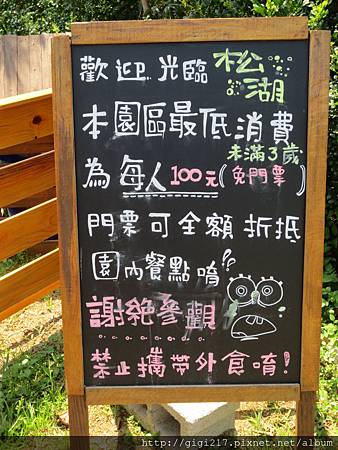 歡迎光臨 松湖
本園區最低消費
為每人100元(免門票)
未滿3歲
門票可全額折抵
園內餐點唷!
謝絕參觀
禁止攜帶外食唷!
http://gigi217.pixnet.net/album